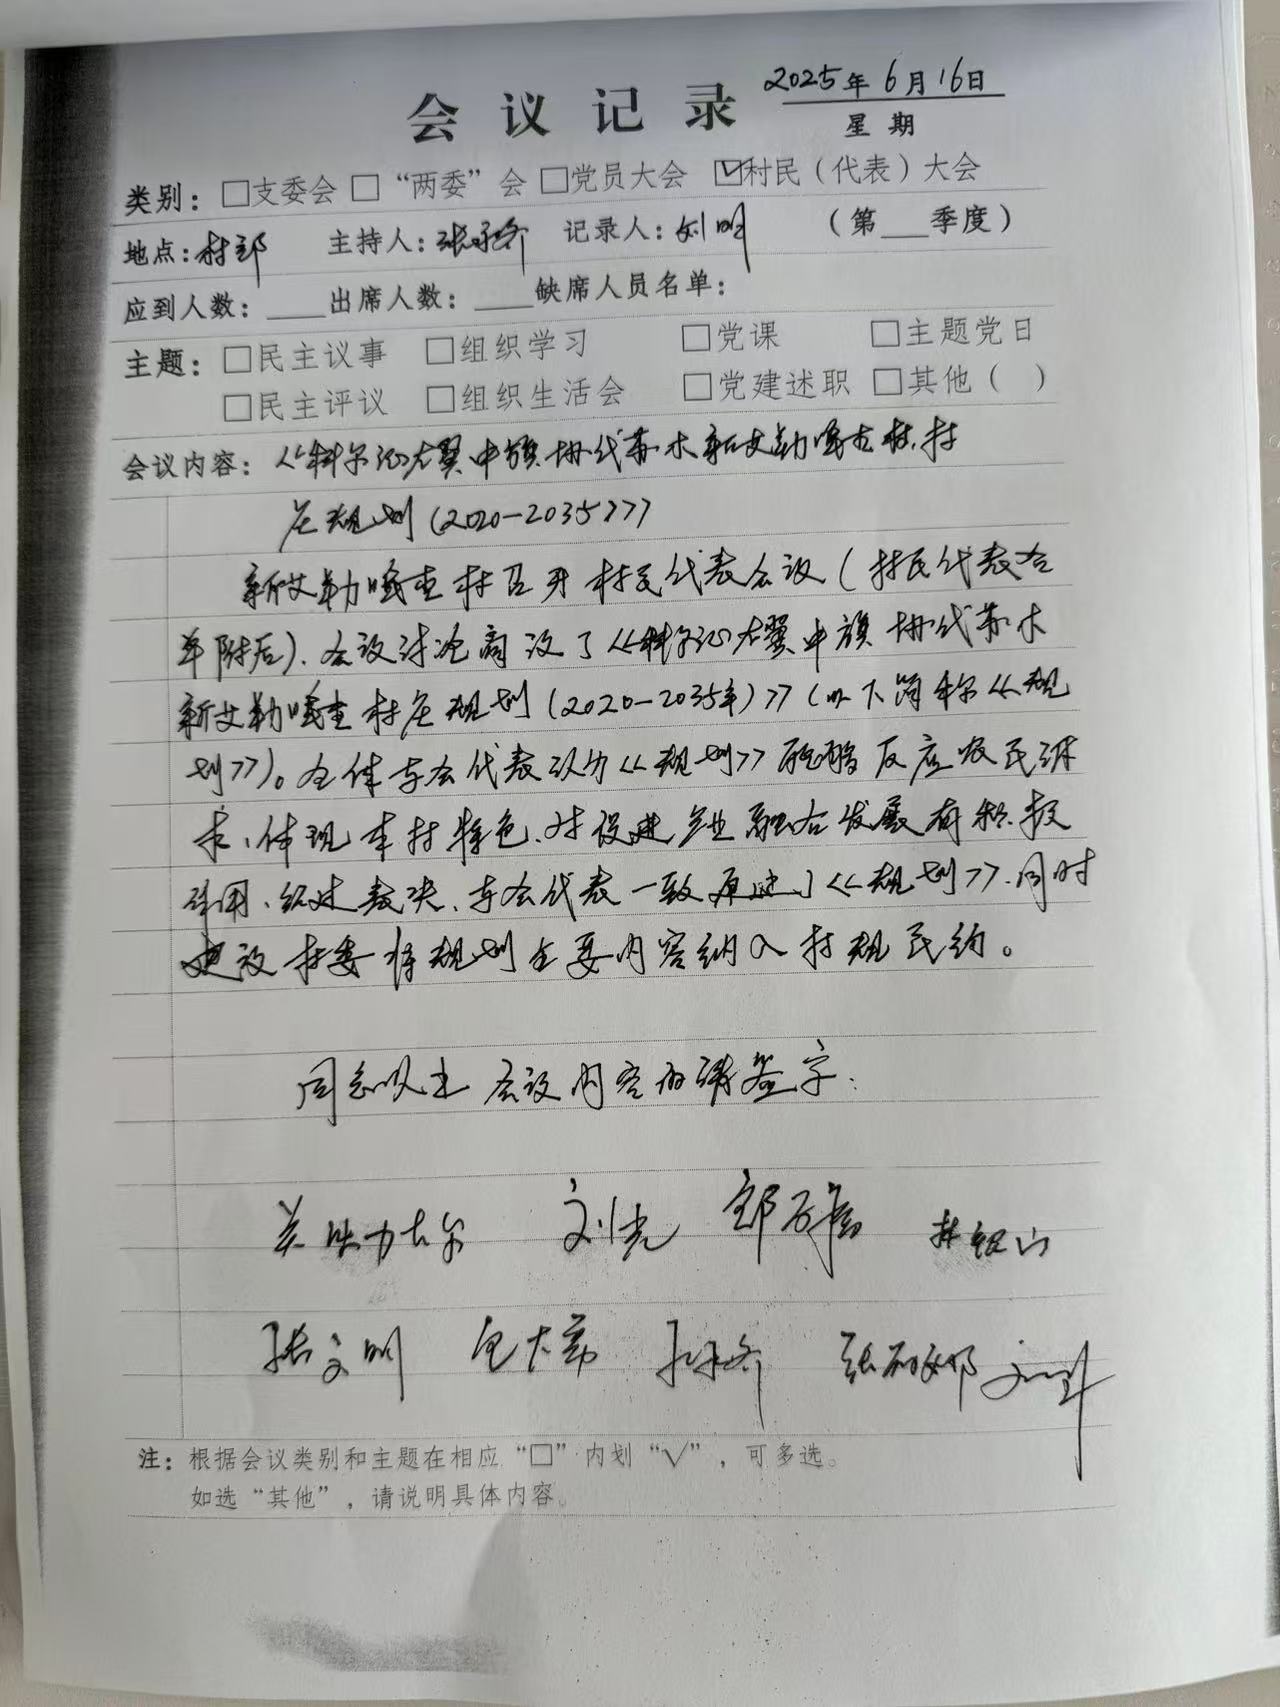 会议记录 2025年6月16日
星期
类别：□支委会 □“两委”会 □党员大会 ☑村民（代表）大会
地点：村部 主持人： 记录人：刘明 （第___季度）
应到人数：____出席人数：____缺席人员名单：
主题：□民主议事 □组织学习 □党课 □主题党日
□民主评议 □组织生活会 □党建述职 □其他（ ）
会议内容：《科尔沁右翼中旗协代苏木新艾勒嘎查村,村
庄规划(2020-2035)》
新艾勒嘎查村召开村民代表会议(村民代表名
单附后)、会议讨论商议了《科尔沁右翼中旗协代苏木
新艾勒嘎查村庄规划(2020-2035年)》(以下简称《规
划》)。全体与会代表认为《规划》能够反应农民诉
求、体现本村特色、对促进产业融合发展有积极
作用、经过表决、与会代表一致原则《规划》.同时
建议村委将规划主要内容纳入村规民约。
同意以上会议内容的请签字：
刘志 邰 林银山
张文明 包大
注：根据会议类别和主题在相应“□”内划“√”，可多选。
如选“其他”，请说明具体内容。